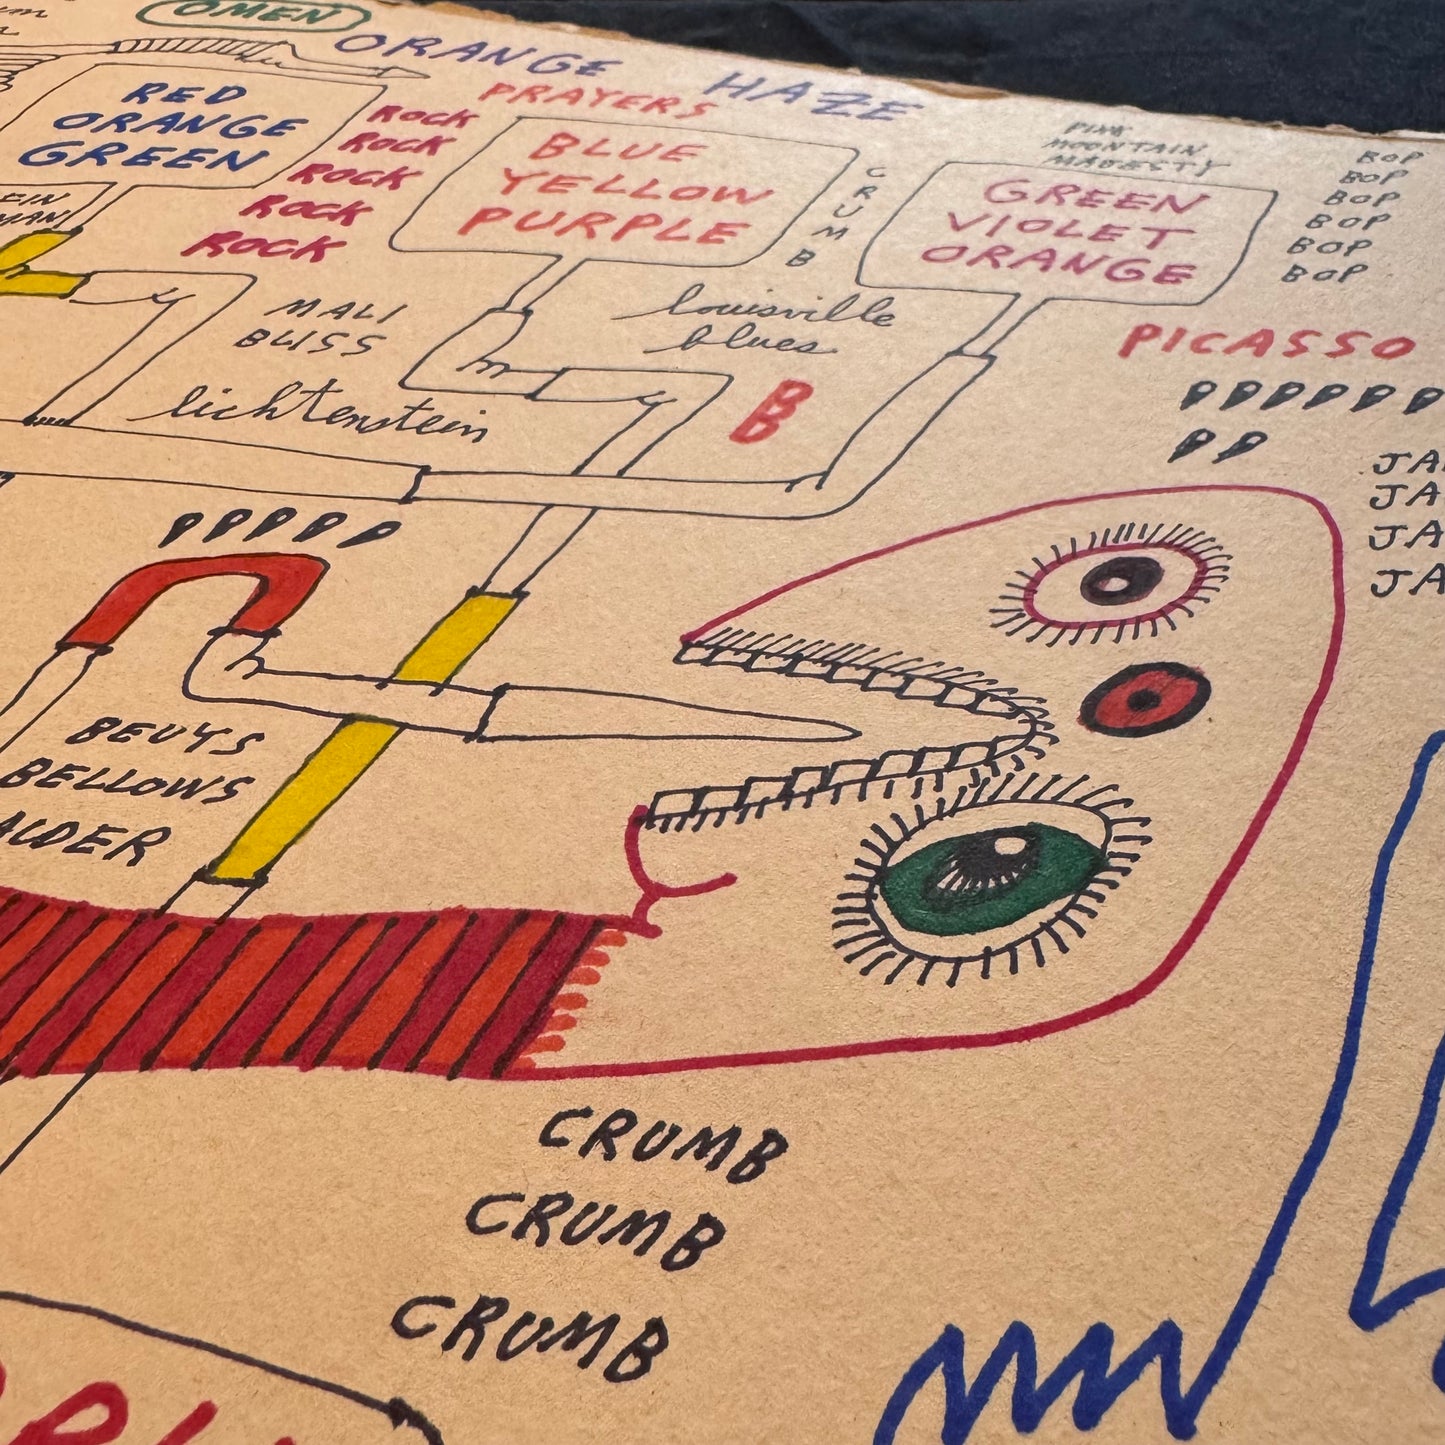 OMEN
ORANGE HAZE
RED
ORANGE
GREEN
ROCK
ROCK
ROCK
ROCK
ROCK
PRAYERS
BLUE
YELLOW
PURPLE
C
R
U
M
B
PINK
MOUNTAIN
MAGESTY
GREEN
VIOLET
ORANGE
BOP
BOP
BOP
BOP
BOP
BOP
MALI
BLISS
louisville
blues
lichtenstein
B
B
PICASSO
PPPPPP
PP
JA
JA
JA
JA
PPPPP
BEUYS
BELLOWS
CRUMB
CRUMB
CRUMB